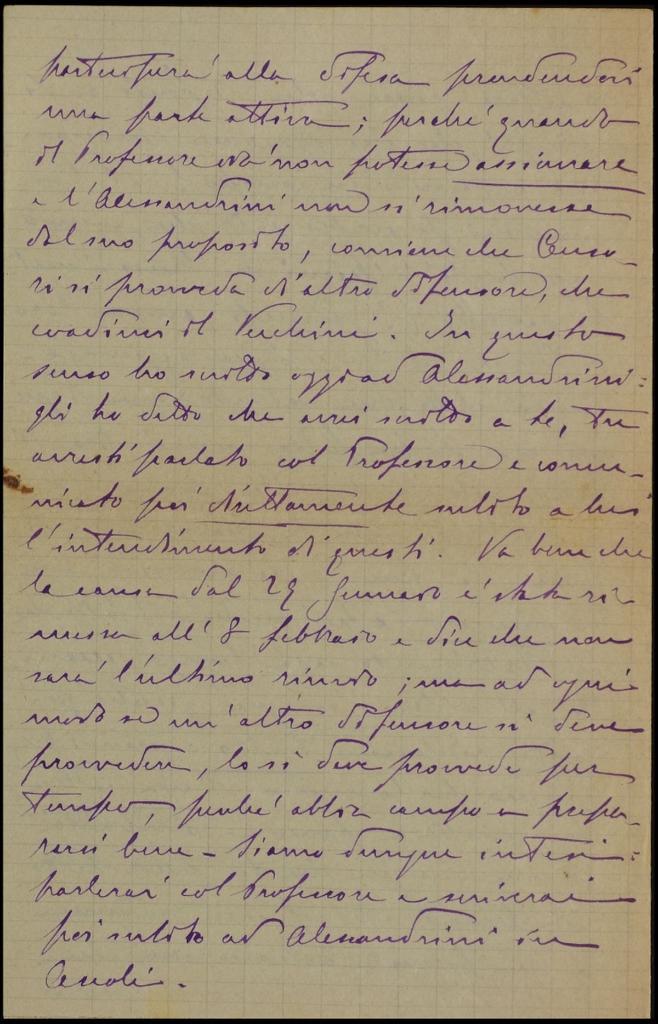 parteciperà alla difesa prendendovi
una parte attiva; perché quando
il Professore non potesse assicurare
e l'Alessandrini non si rimovesse
dal suo proposito, conviene che Censo-
ri si provveda d'altro difensore, che
coadiuvi il Vecchini. In questo
senso ho scritto oggi ad Alessandrini:
gli ho detto che avrei scritto a te, tu
avresti parlato col Professore e comu-
nicato poi direttamente subito a lui
l'intendimento di questi. Va bene che
la causa dal 29 Gennaio è stata ri-
messa all' 8 febbraio e dice che non
sarà l'ultimo rinvio; ma ad ogni
modo se un altro difensore si deve
provvedere, lo si deve provvedere per
tempo, perché abbia campo a prepa-
rarsi bene - Siamo dunque intesi:
parlerai col Professore e scriverai
poi subito ad Alessandrini in
Ascoli.